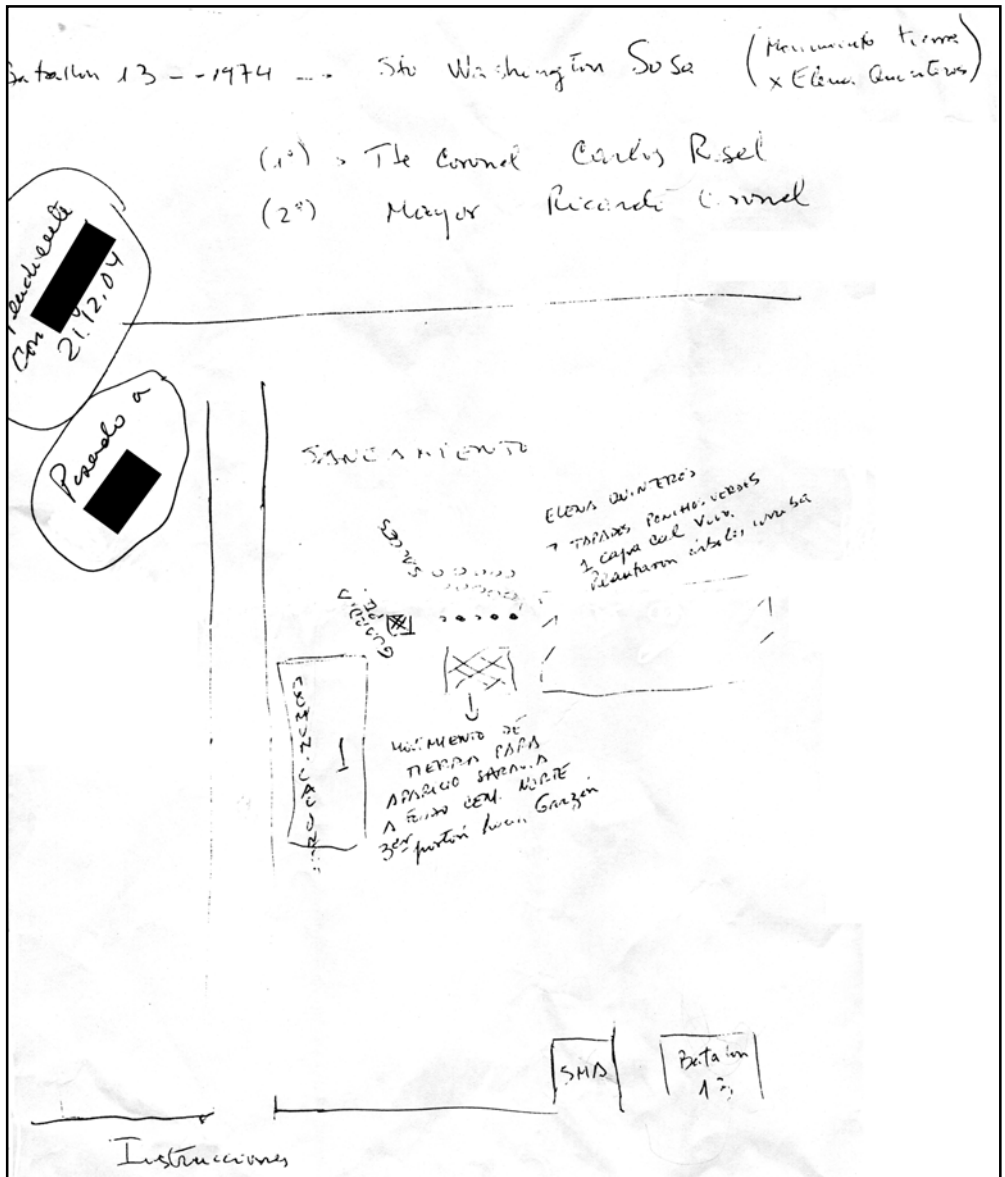 Batallon 13 - - 1974 ... Sto Washington Sosa
(Movimiento tierra
x Elena Quinteros)
(1°) Tte Coronel Carlos
(2°) Mayor Ricardo
Pendiente
Con
21.12.04
Pasado a
SANEAMIENTO
ELENA QUINTEROS
TAPADOS PONCHOS VERDES
1 capa cal viva
Plantaron árboles
SAUCES
GUARDIA
MOVIMIENTO DE
TIERRA PARA
APARICIO SARAVIA
A CEM. NORTE
3er portón Garzón
SMA
Batallon
13
Instrucciones